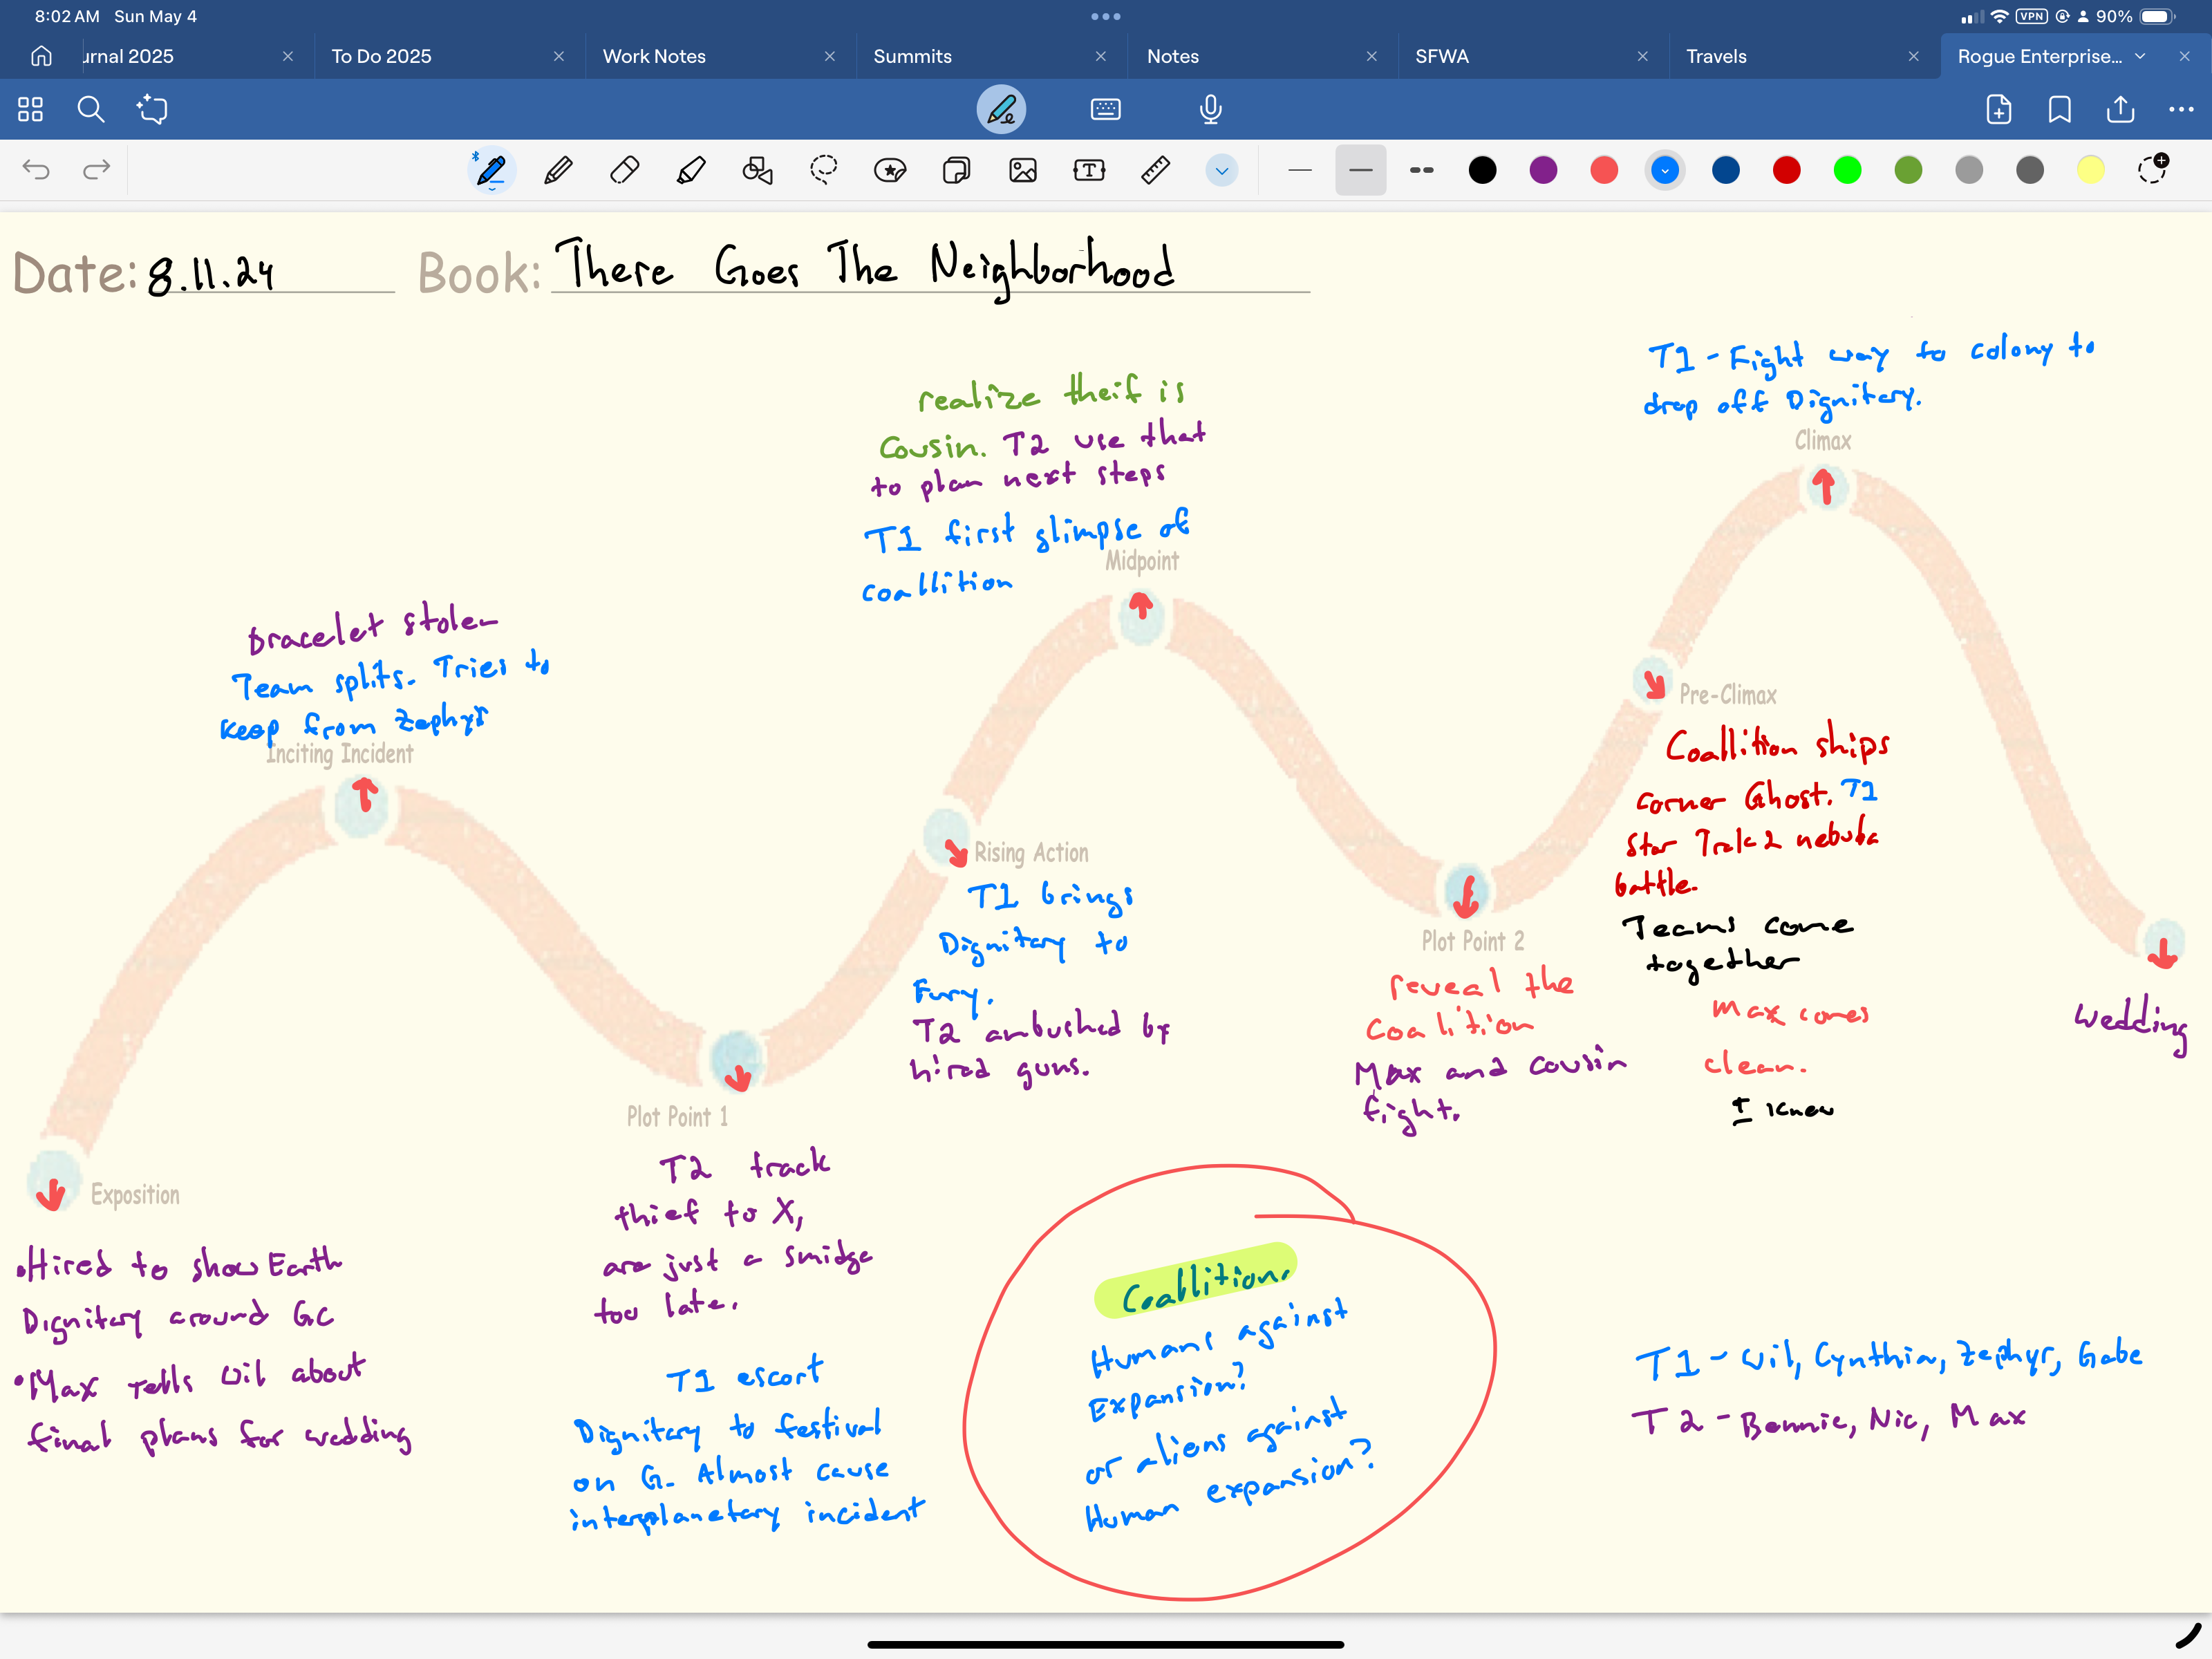 8:02 AM Sun May 4
VPN 90%
urnal 2025
To Do 2025
Work Notes
Summits
Notes
SFWA
Travels
Rogue Enterprise...
Date: 8.11.24 Book: There Goes The Neighborhood
T1 - Fight way to colony to
drop off Dignitary.
Climax
realize theif is
Cousin. T2 use that
to plan next steps
T1 first glimpse of
coallition
Midpoint
Bracelet stolen
Team splits. Tries to
keep from Zephyr
Inciting Incident
Pre-Climax
Coallition ships
corner Ghost. T1
Star Trek 2 nebula
battle.
Teams come
together
Max comes
clean.
I knew
Rising Action
T1 brings
Dignitary to
Fury.
T2 ambushed by
hired guns.
Plot Point 2
reveal the
Coalition
Max and cousin
fight.
Wedding
Plot Point 1
T2 track
thief to X,
are just a smidge
too late.
T1 escort
Dignitary to festival
on G. Almost cause
interplanetary incident
Exposition
•Hired to show Earth
Dignitary around GC
•Max tells Wil about
final plans for wedding
Coallition.
Humans against
Expansion?
or aliens against
Human expansion?
T1 - Wil, Cynthia, Zephyr, Gabe
T2 - Bennie, Nic, Max